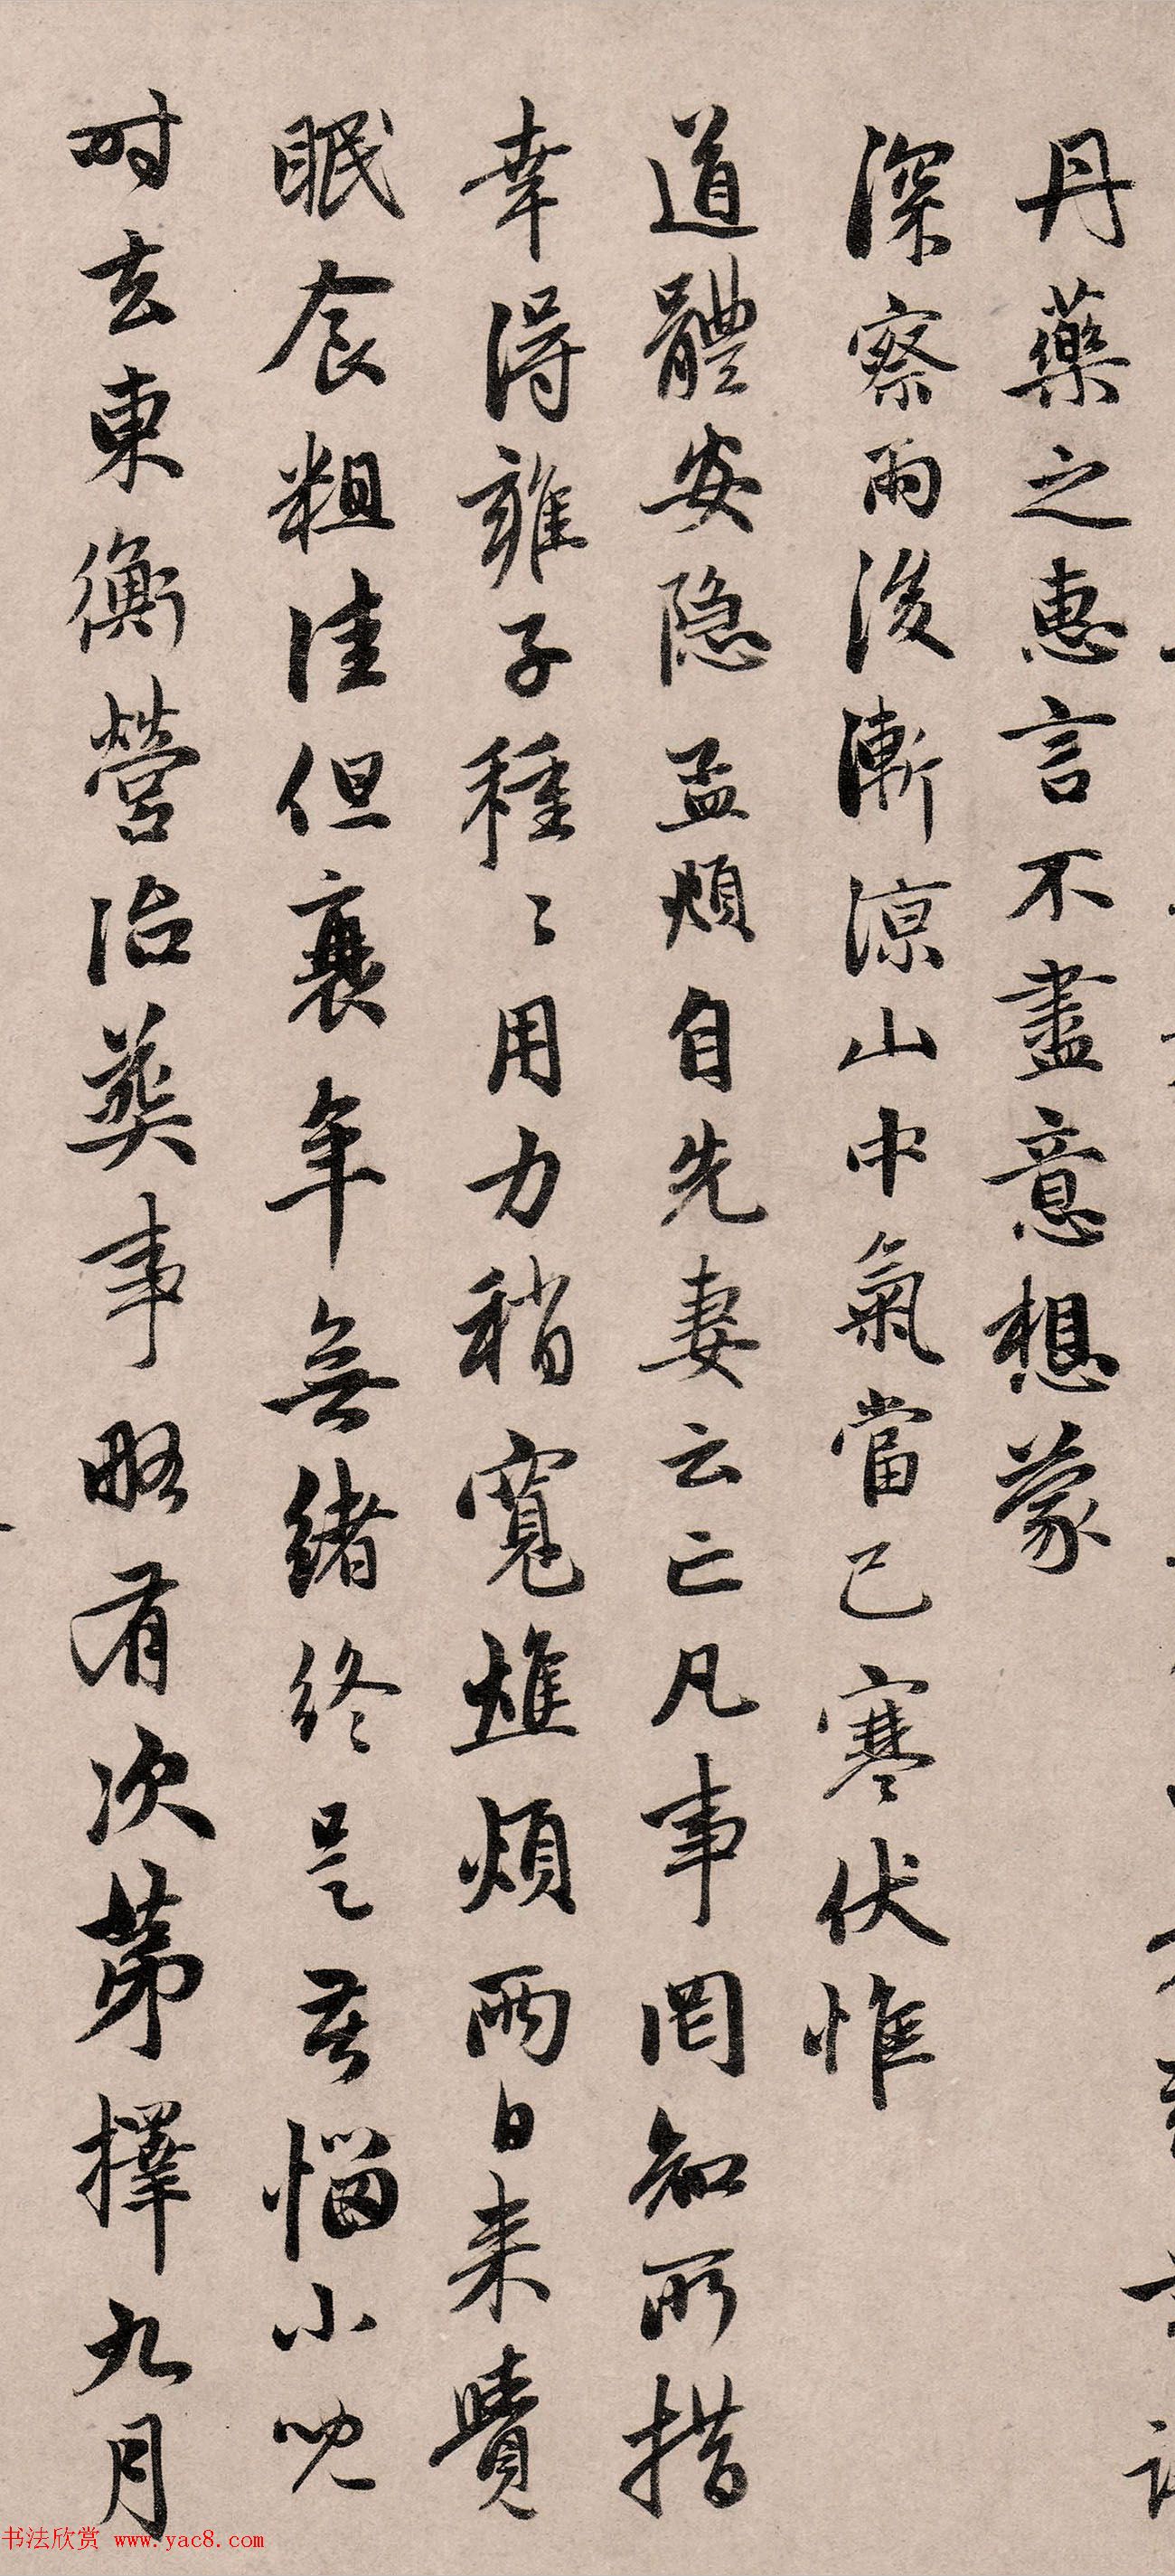 丹藥之惠言不盡意想蒙
深察雨後漸涼山中氣當已寒伏惟
道體安隐孟頫自先妻云亡凡事罔知所措
幸得雍子種〻用力稍寬雖頫兩日来覺
眠食粗佳但衰年無緒終是苦惱小兒
时去東衡營治葬事略有次第擇九月
书法欣赏 www.yac8.com